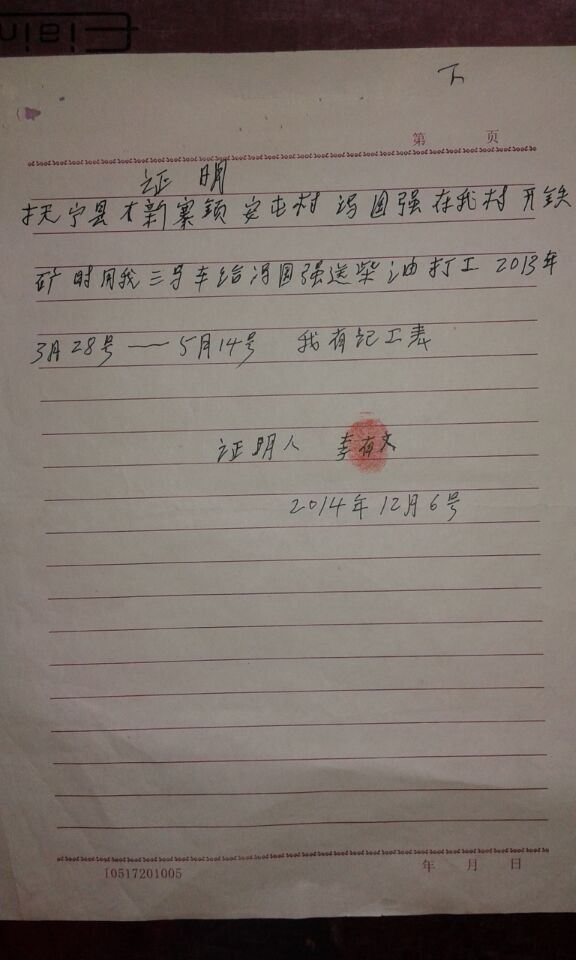 下
第 页
证 明
抚宁县大新寨镇安屯村 冯国强在我村开铁
矿时用我三号车给冯国强送柴油打工 2013年
3月28号——5月14号 我有记工表
证明人 李有文
2014年12月6号
年 月 日
[0517201005